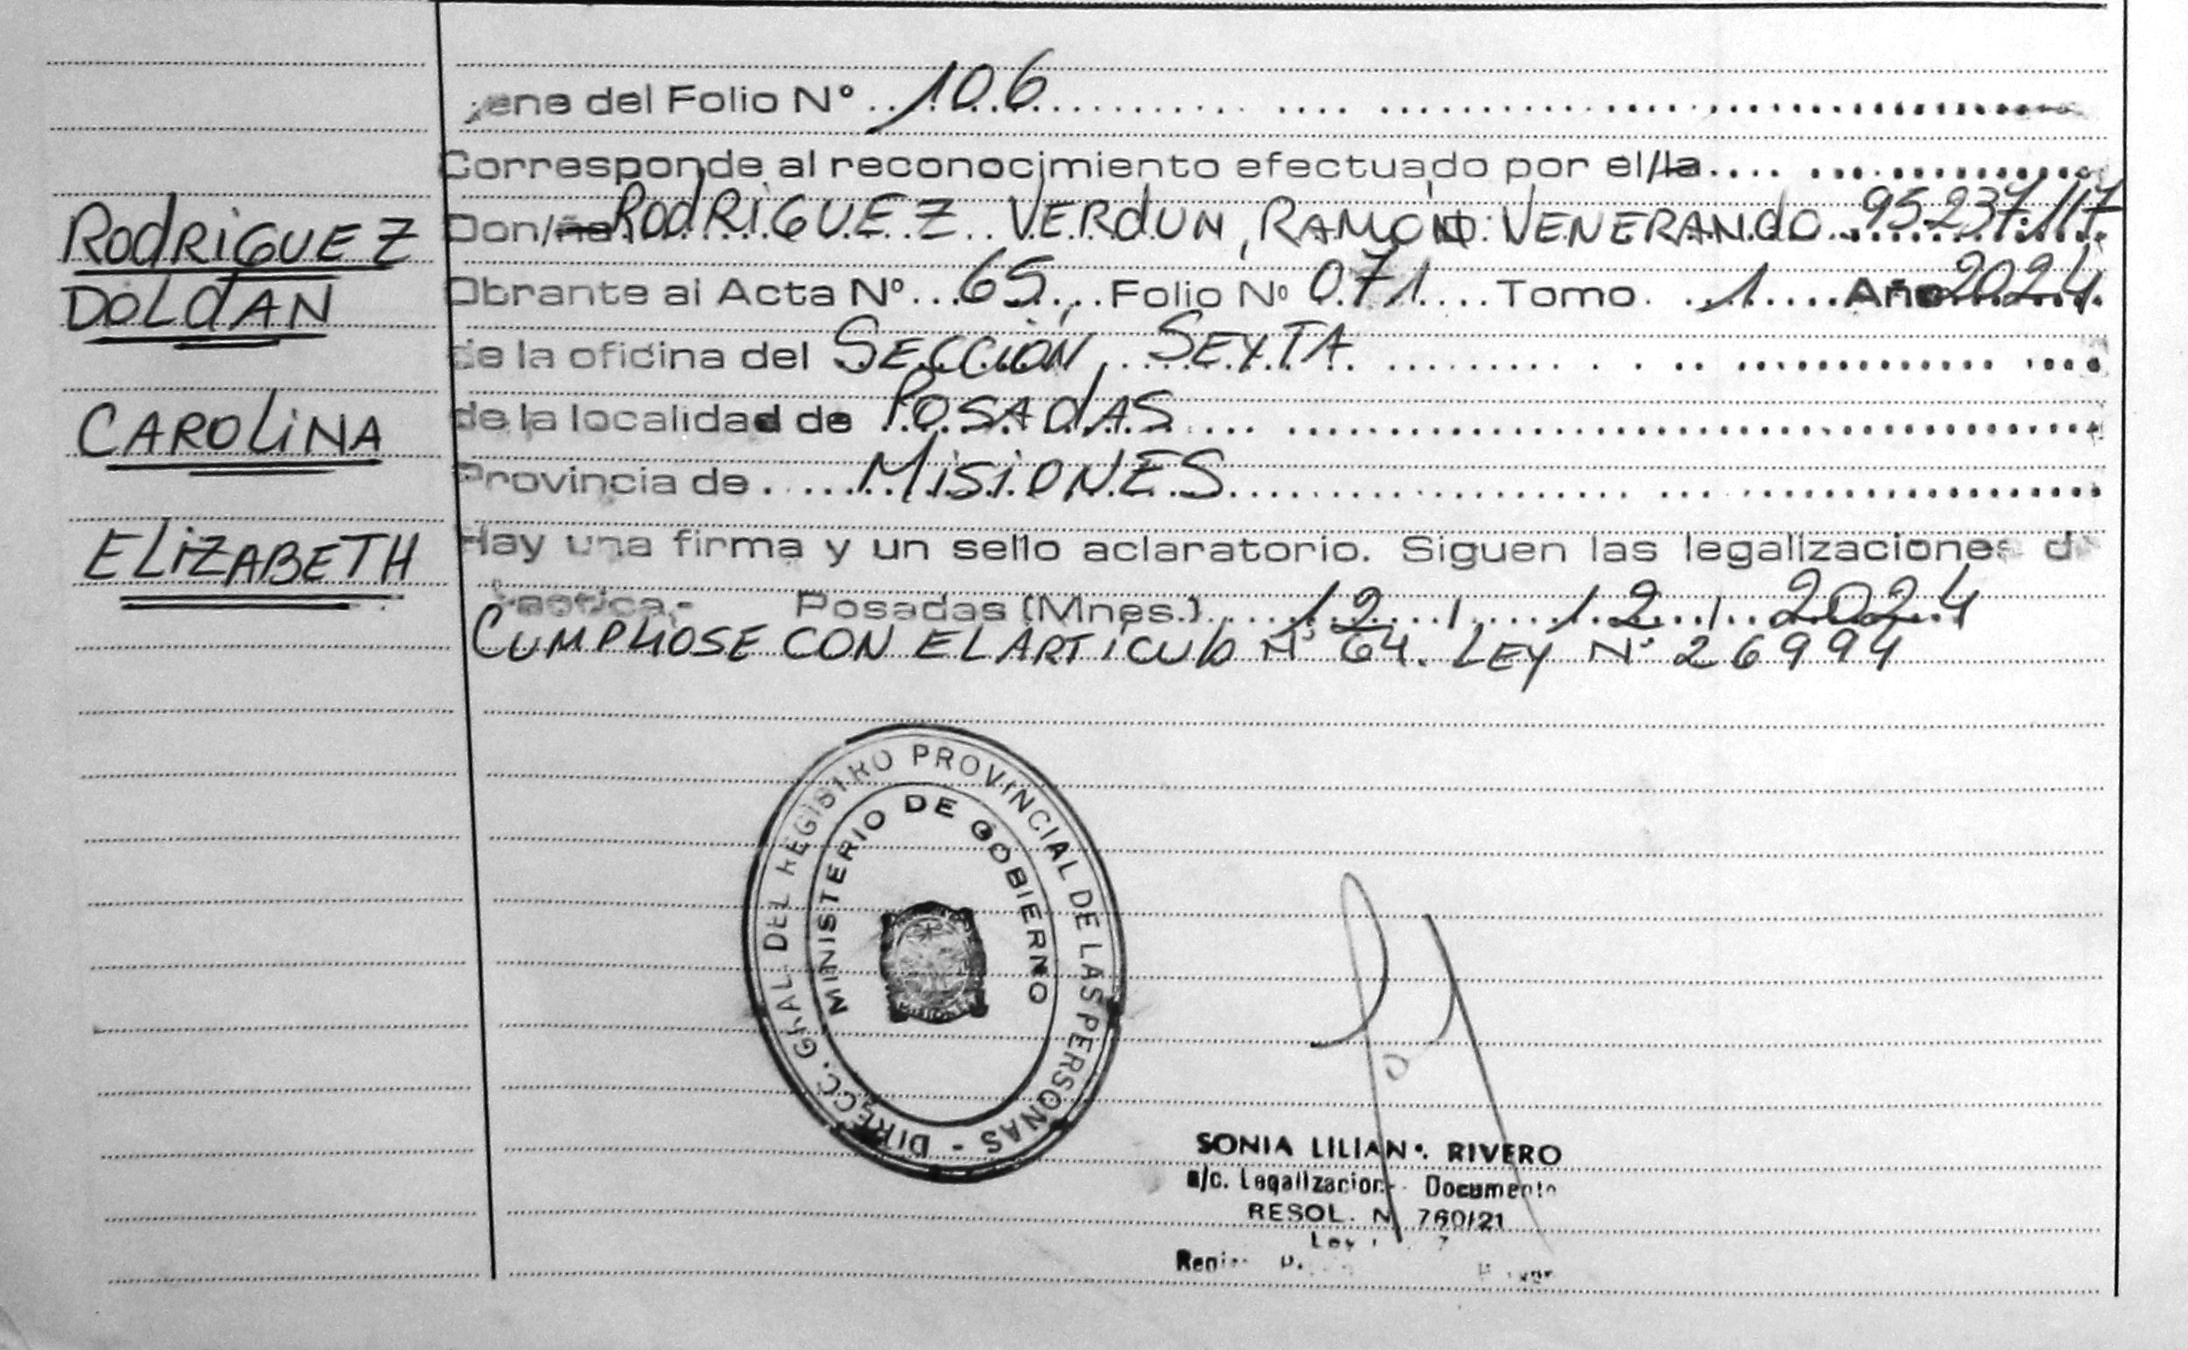 RODRIGUEZ
DOLDAN
CAROLINA
ELIZABETH
ene del Folio Nº 106
Corresponde al reconocimiento efectuado por el/la
Don/ña RODRIGUEZ VERDUN, RAMON VENERANDO 95.237.117
Obrante al Acta Nº 65, Folio Nº 071 Tomo 1 Año 2024
de la oficina del SECCION SEXTA
de la localidad de POSADAS
Provincia de MISIONES
Hay una firma y un sello aclaratorio. Siguen las legalizaciones d
Posadas (Mnes.) 12 / 12 / 2024
CUMPLIOSE CON EL ARTICULO Nº 64. LEY Nº 26994
DIRECC. GRAL DEL REGISTRO PROVINCIAL DE LAS PERSONAS -
MINISTERIO DE GOBIERNO
MISIONES
SONIA LILIAN RIVERO
a/c. Legalizacion Documento
RESOL. N 760/21
Ley